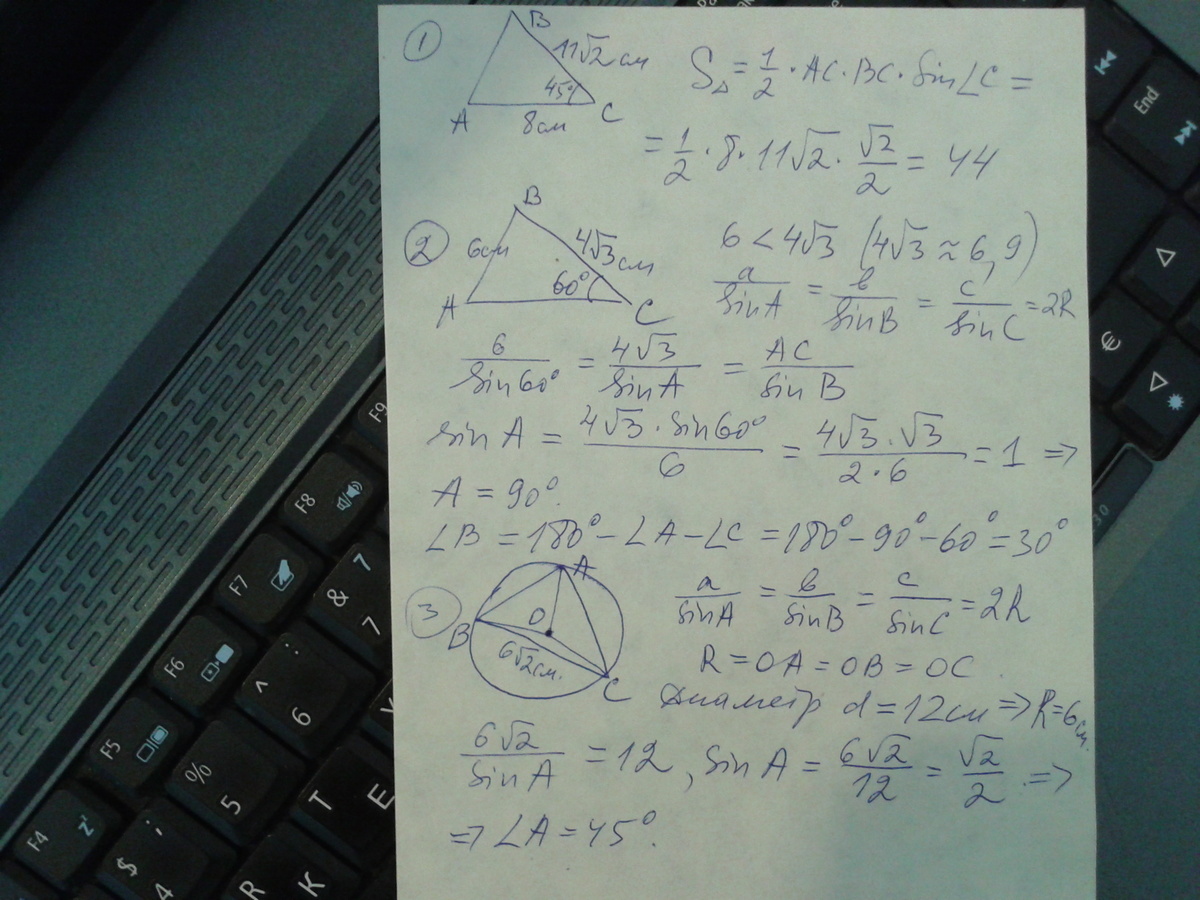 1
B
11√2 см
45°
A
8см
C
S△ = 1/2 · AC · BC · Sin∠C =
= 1/2 · 8 · 11√2 · √2/2 = 44
2
B
6см
4√3 см
60°
A
C
6 < 4√3 (4√3 ≈ 6,9)
a/sinA = b/sinB = c/sinC = 2R
6/sin60° = 4√3/sinA = AC/sinB
sin A = 4√3 · sin60°/6 = 4√3 · √3/2·6 = 1 =>
A = 90°.
∠B = 180° − ∠A − ∠C = 180° − 90° − 60° = 30°
3
A
B
O
6√2см.
C
a/sinA = b/sinB = c/sinC = 2R
R = OA = OB = OC.
Диаметр d = 12см => R = 6см.
6√2/sinA = 12, sin A = 6√2/12 = √2/2 =>
=> ∠A = 45°.
End
€
3.0
F9
F8
F7
F6
F5
F4
& 7
7
^ 6
% 5
$ 4
T
E
R
K
z